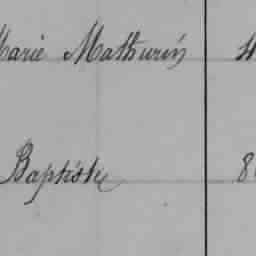 Marie Mathurin 4
Baptiste 8